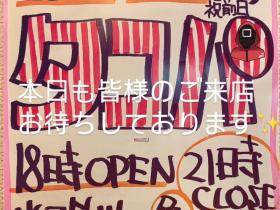 祝前日
タコパ
本日も皆様のご来店
お待ちしております✨
18時OPEN
21時
CLOSE